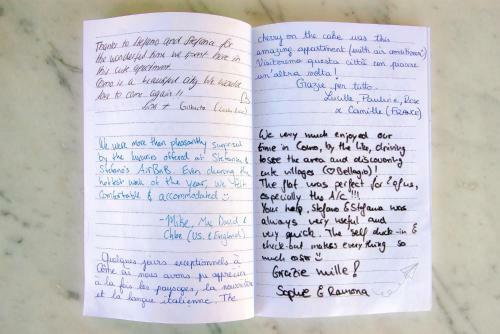 Thanks to Stefano and Stefania for
the wonderful time we spent here in
this cute apartment.
Como is a beautiful city. We would
love to come again!!
+
We were more than pleasantly surprised
by the luxuries offered at Stefania &
Stefano's AirBnB. Even during the
hottest week of the year, we felt
comfortable & accommodated
- Mike, My, David &
Chloe (US & England)
Quelques jours exceptionnels à
Côme où nous avons pu apprécier
à la fois les paysages, la nourriture
et la langue italienne. The
cherry on the cake was this
amazing appartment (with air conditioner!)
Visiteremo questa città con piacere
un'altra volta!
Grazie per tutto.
Lucille, Pauline, Rose
& Camille (FRANCE)
We very much enjoyed our
time in Como, by the lake, driving
to see the area and discovering
cute villages (♡Bellagio)!
The flat was perfect for 2 of us,
especially the A/C!!!
Your help, Stefano & Stefania was
always very useful and
very quick. The self check-in &
check-out makes everything so
much easier
Grazie mille!
Sophie & Ramona